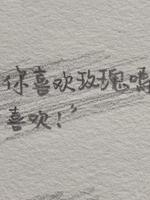 你喜欢玫瑰吗
喜欢！”